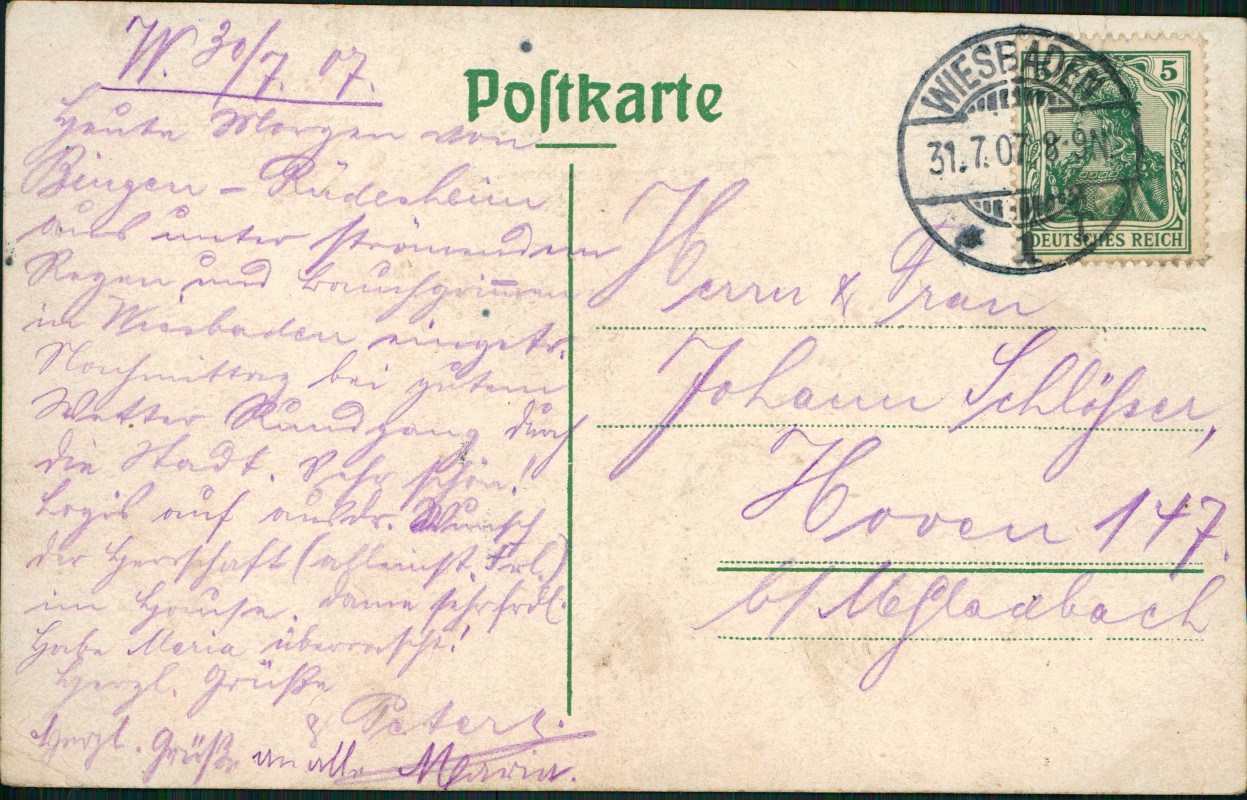 W. 30/7. 07.
Heute Morgen von
Bingen – Rüdesheim
aus unter strömendem
Regen und Bauchgrimmen
in Wiesbaden eingetr.
Nachmittag bei gutem
Wetter Rundgang durch
die Stadt. Sehr schön!
Logis auf ausdr. Wunsch
der Herrschaft (alleinst. Frl.)
im Hause. Dame sehr frdl.
Habe Maria überrascht!
Herzl. Grüße
Peter
Herzl. Grüße an alle Maria.
Postkarte
WIESBADEN
31.7.07. 8-9N.
* 1
5
DEUTSCHES REICH
Herrn & Frau
Johann Schlösser,
Hoven 147.
b/ MGladbach